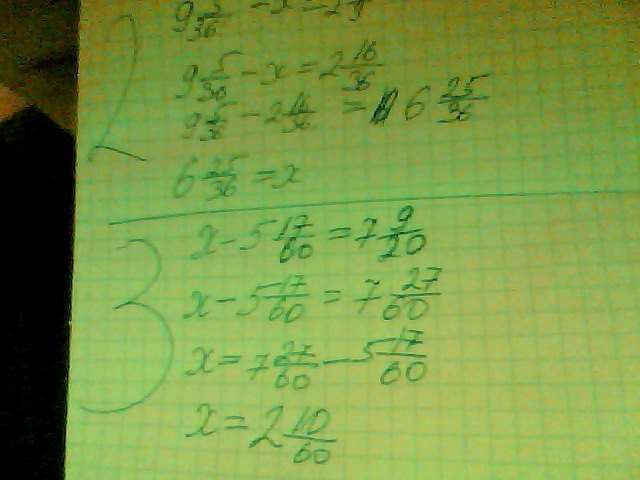 2
9 5/36 - x = 2 16/36
9 5/36 - 2 16/36 = 6 25/36
6 25/36 = x
3
x - 5 17/60 = 7 9/20
x - 5 17/60 = 7 27/60
x = 7 27/60 - 5 17/60
x = 2 10/60